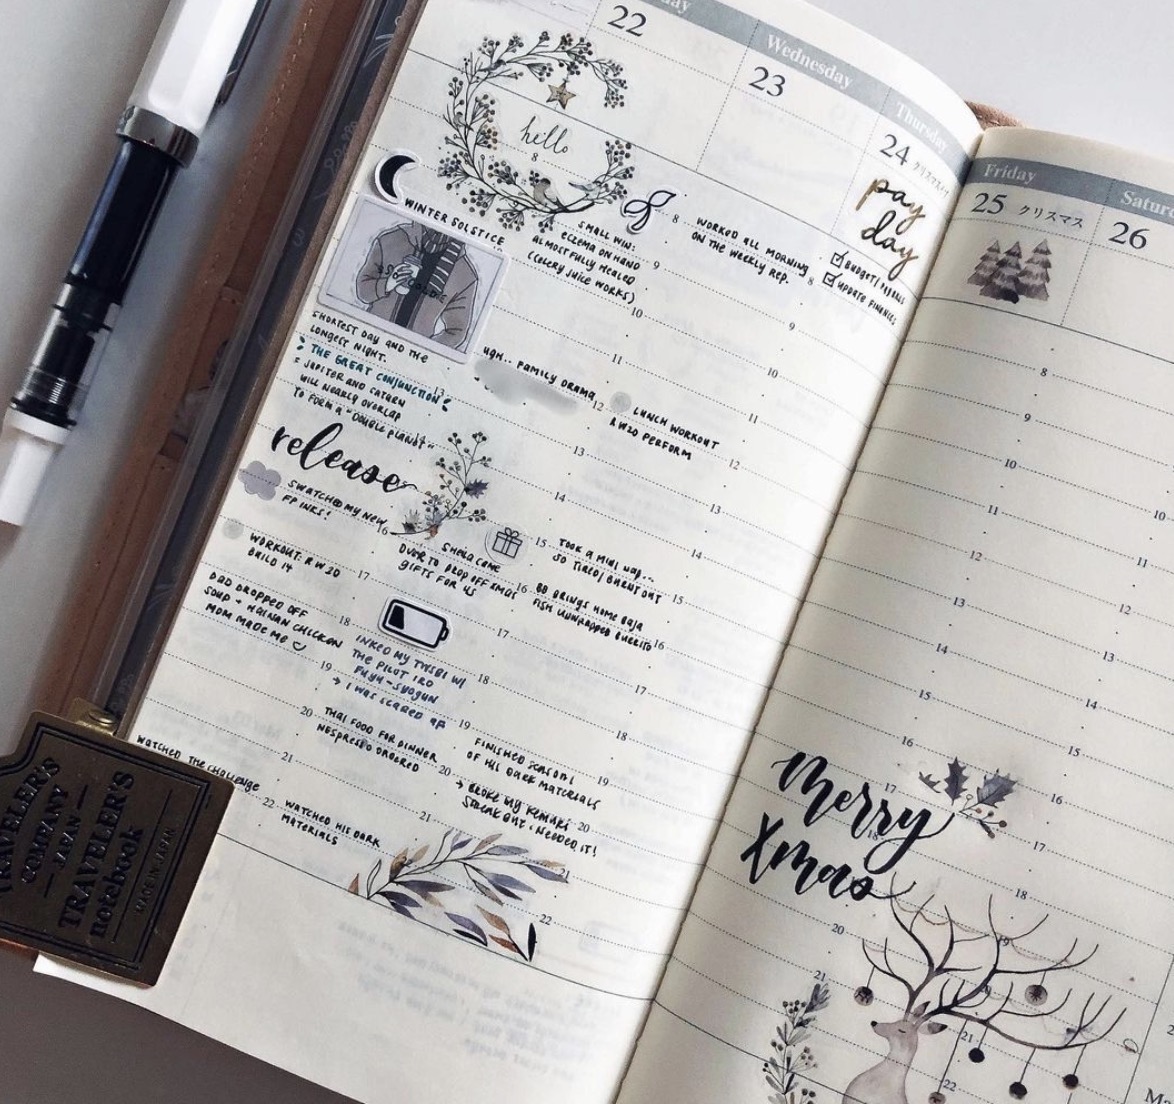 22
Wednesday
23
Thursday
24
Friday
25 クリスマス
26
hello
pay
day
WINTER SOLSTICE
SHORTEST DAY AND THE
LONGEST NIGHT.
THE GREAT CONJUNCTION
JUPITER AND SATURN
WILL NEARLY OVERLAP
TO FORM A "DOUBLE PLANET"
release
SWATCHED MY NEW
FP INKS!
WORKOUT: RW20
BUILD 14
DAD DROPPED OFF
SOUP + HAINAN CHICKEN
MOM MADE ME
WATCHED THE CHALLENGE
SMALL WIN:
ECZEMA ON HAND
ALMOST FULLY HEALED
(CELERY JUICE WORKS)
UGH.. FAMILY DRAMA
SHEILA CAME
OVER TO DROP OFF XMAS
GIFTS FOR US
INKED MY TWSBI W/
THE PILOT IRO
FUYU-SYOGUN
→ I WAS SCARED AF
THAI FOOD FOR DINNER
NESPRESSO ORDERED
WATCHED HIS DARK
MATERIALS
WORKED ALL MORNING
ON THE WEEKLY REP.
LUNCH WORKOUT
RW20 PERFORM
TOOK A MINI NAP...
SO TIRED/BURNT OUT
BB BRINGS HOME BAJA
FISH UNWRAPPED BURRITO
FINISHED SEASON 1
OF HIS DARK MATERIALS
→ BROKE MY
STREAK BUT I NEEDED IT!
UPDATE FINANCES
Merry
Xmas
TRAVELER'S
COMPANY
JAPAN
TRAVELER'S
notebook
MADE IN JAPAN